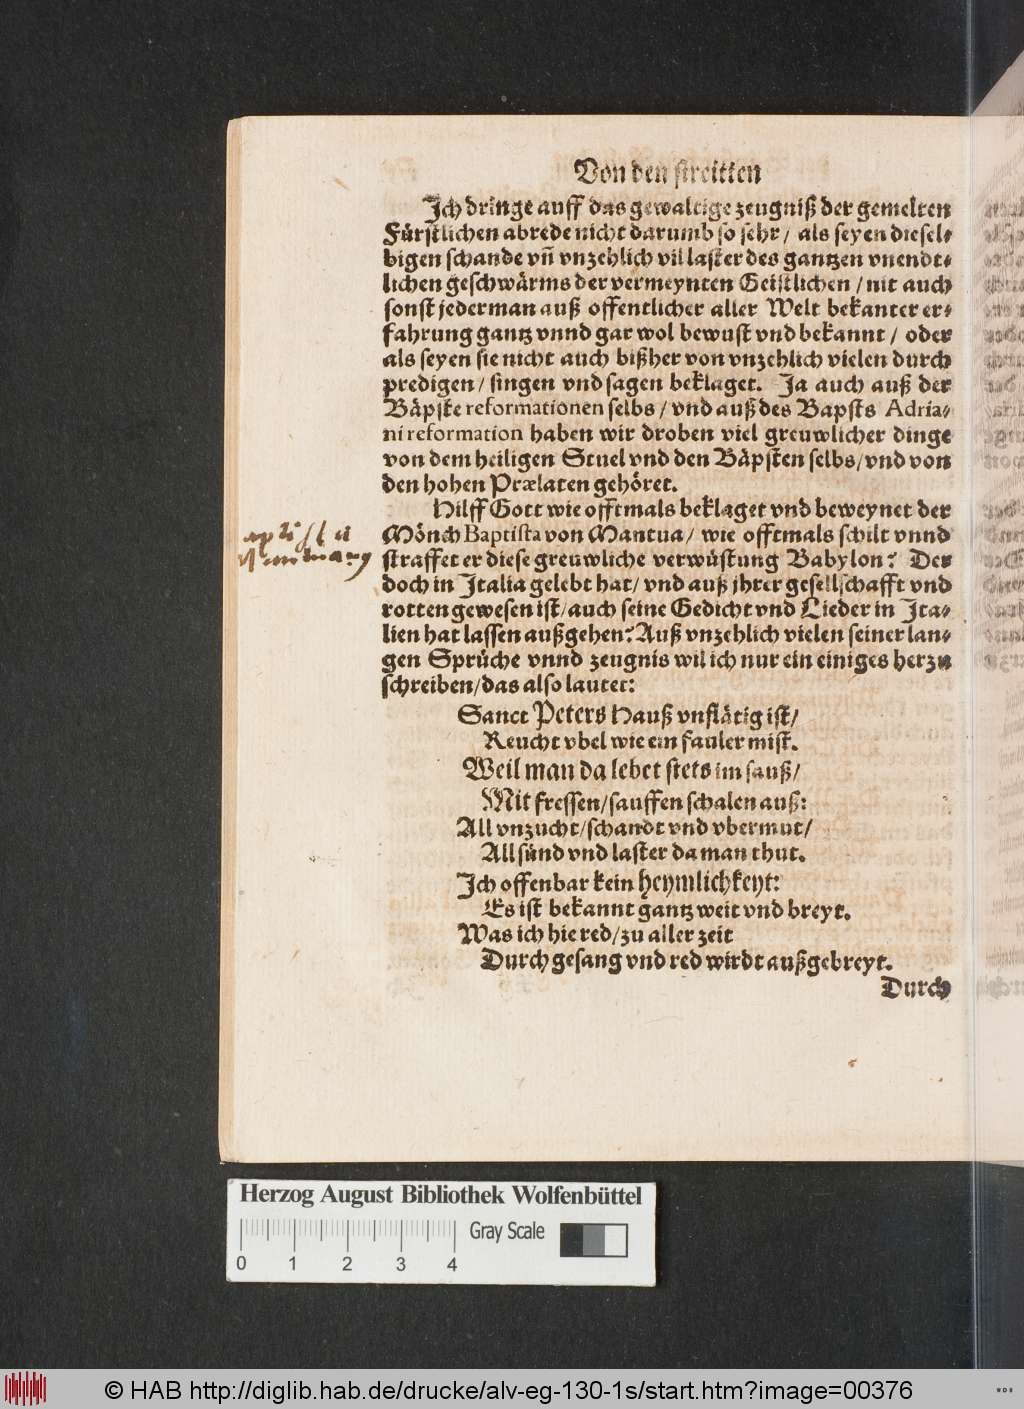 Von den streitten
Ich dringe auff das gewaltige zeugniß der gemelten
Fürstlichen abrede nicht darumb so sehr / als seyen diesel-
bigen schande vñ vnzehlich vil laster des gantzen vnendt-
lichen geschwärms der vermeynten Geistlichen / nit auch
sonst jederman auß offentlicher aller Welt bekanter er-
fahrung gantz vnnd gar wol bewust vnd bekannt / oder
als seyen sie nicht auch bißher von vnzehlich vielen durch
predigen / singen vnd sagen beklaget. Ja auch auß der
Bäpste reformationen selbs / vnd auß des Bapsts Adria-
ni reformation haben wir droben viel greuwlicher dinge
von dem heiligen Stuel vnd den Bäpsten selbs / vnd von
den hohen Prælaten gehöret.
Hilff Gott wie offtmals beklaget vnd beweynet der
Mönch Baptista von Mantua / wie offtmals schilt vnnd
straffet er diese greuwliche verwüstung Babylon? Der
doch in Italia gelebt hat / vnd auß jhrer gesellschafft vnd
rotten gewesen ist / auch seine Gedicht vnd Lieder in Ita-
lien hat lassen außgehen? Auß vnzehlich vielen seiner lan-
gen Sprüche vnnd zeugnis wil ich nur ein einiges herzu
schreiben / das also lautet:
Sanct Peters Hauß vnflätig ist /
Reucht vbel wie ein fauler mist.
Weil man da lebet stets im sauß /
Mit fressen / sauffen schalen auß:
All vnzucht / schandt vnd vbermut /
All sünd vnd laster da man thut.
Ich offenbar kein heymlichkeyt:
Es ist bekannt gantz weit vnd breyt.
Was ich hie red / zu aller zeit
Durch gesang vnd red wirdt außgebreyt.
Durch
Herzog August Bibliothek Wolfenbüttel
Gray Scale
0 1 2 3 4
© HAB http://diglib.hab.de/drucke/alv-eg-130-1s/start.htm?image=00376